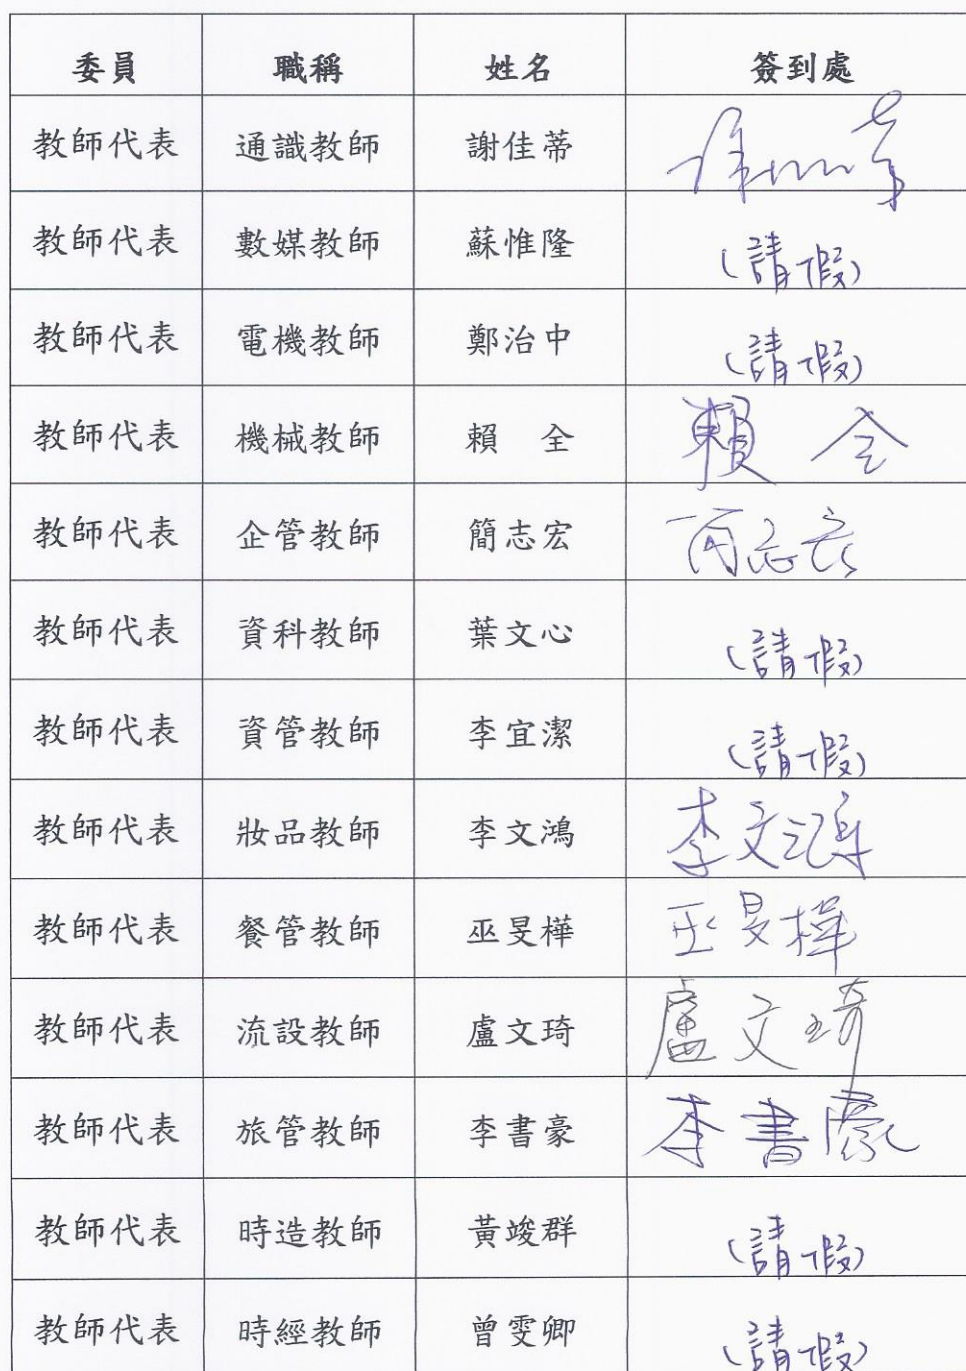 委員 職稱 姓名 簽到處
教師代表 通識教師 謝佳蒂
教師代表 數媒教師 蘇惟隆 (請假)
教師代表 電機教師 鄭治中 (請假)
教師代表 機械教師 賴 全 賴 全
教師代表 企管教師 簡志宏 簡志宏
教師代表 資科教師 葉文心 (請假)
教師代表 資管教師 李宜潔 (請假)
教師代表 妝品教師 李文鴻 李文鴻
教師代表 餐管教師 巫旻樺 巫旻樺
教師代表 流設教師 盧文琦 盧文琦
教師代表 旅管教師 李書豪 李書豪
教師代表 時造教師 黃竣群 (請假)
教師代表 時經教師 曾雯卿 (請假)